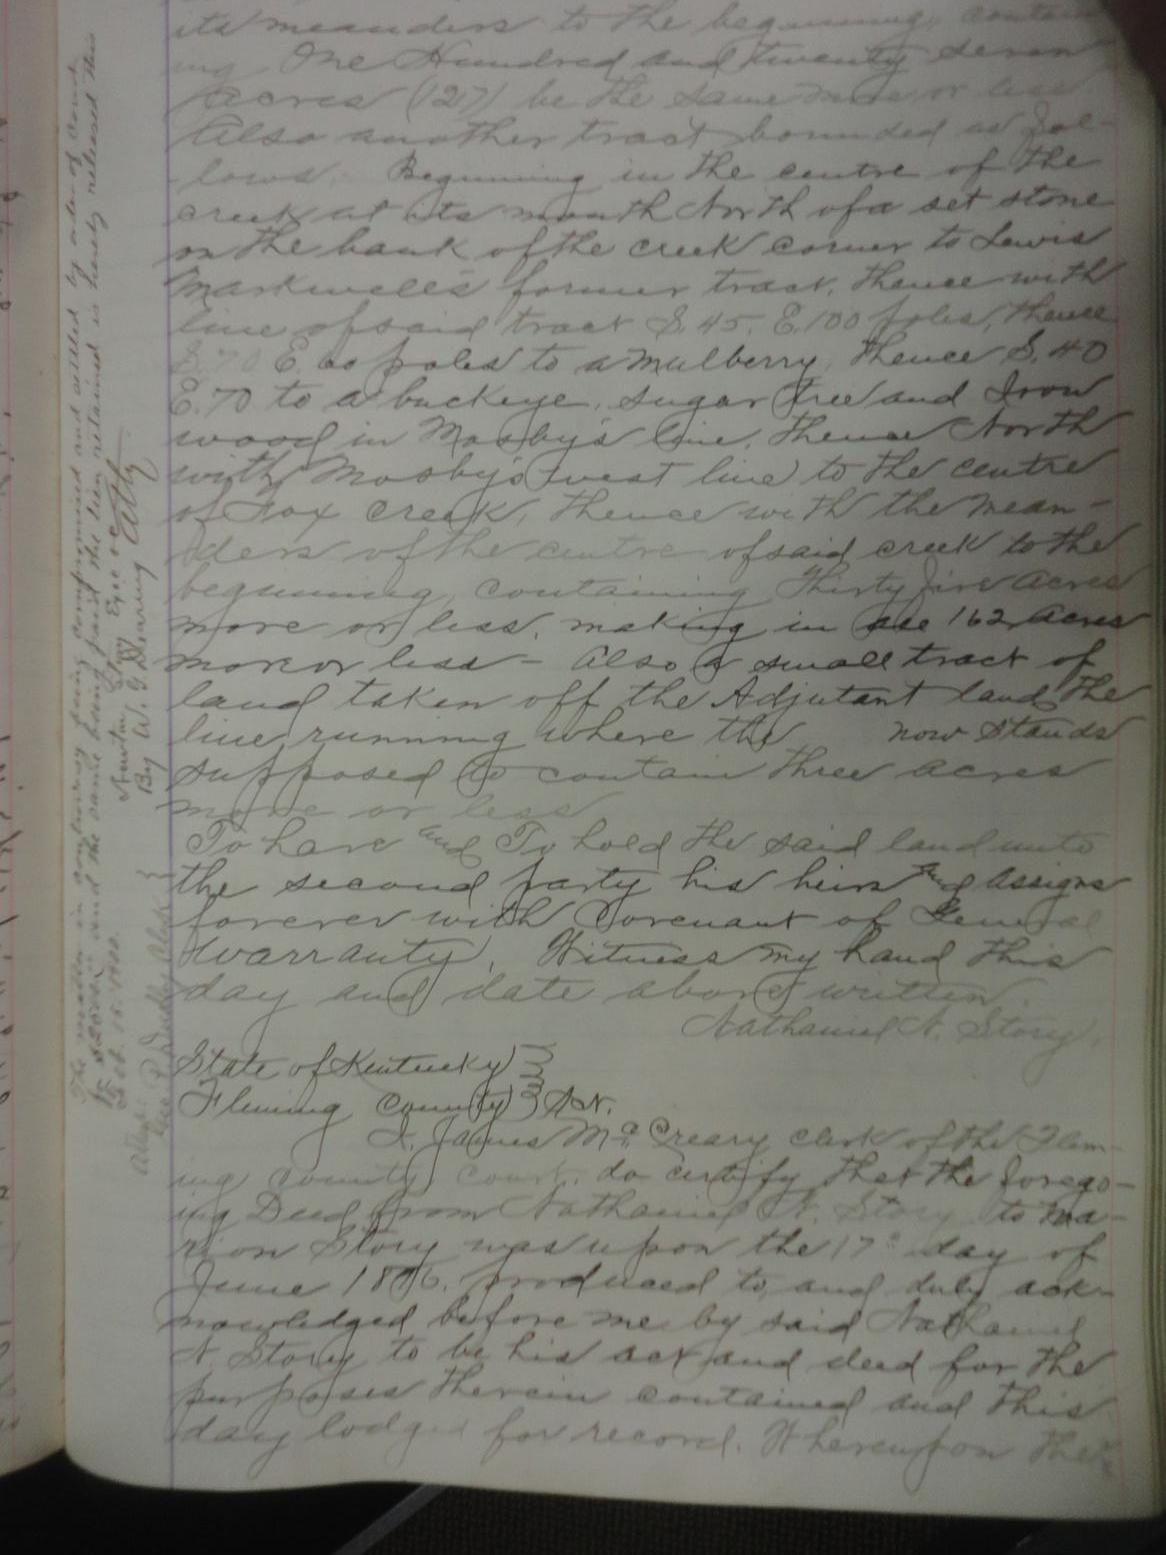 its meanders to the beginning, contain
ing One Hundred and twenty seven
acres (127) be the same more or less
Also another tract bounded as fol-
lows. Beginning in the centre of the
creek at its mouth North of a set stone
on the bank of the creek corner to Lewis
Markwell's former tract, thence with
line of said tract S. 45. E. 100 poles, thence
S. 70 E. 60 poles to a mulberry, thence S. 40
E. 70 to a buckeye, sugar tree and Iron
wood in Mosby's line, thence North
with Mosby's west line to the centre
of Fox creek, thence with the mean-
ders of the centre of said creek to the
beginning, containing Thirty five acres
more or less, making in all 162 acres
more or less - Also a small tract of
land taken off the Adjutant land the
line running where the now stands
supposed to contain three acres
more or less
To have and To hold the said land unto
the second party his heirs and assigns
forever with Covenant of General
Warranty. Witness my hand this
day and date above written.
Nathaniel N. Story.
State of Kentucky }
Fleming County } Sct.
I. James McCreary clerk of the Flem-
ing county court, do certify that the forego-
ing Deed from Nathaniel N. Story to Ma-
rion Story was upon the 17th day of
June produced to, and duly ack-
nowledged before me by said Nathaniel
N. Story to be his act and deed for the
purposes therein contained and this
day lodged for record. Whereupon the
The matter in controversy being compromised and settled by order of Court
and the same being paid the lien retained is hereby released this
By W. G. Dearing Atty